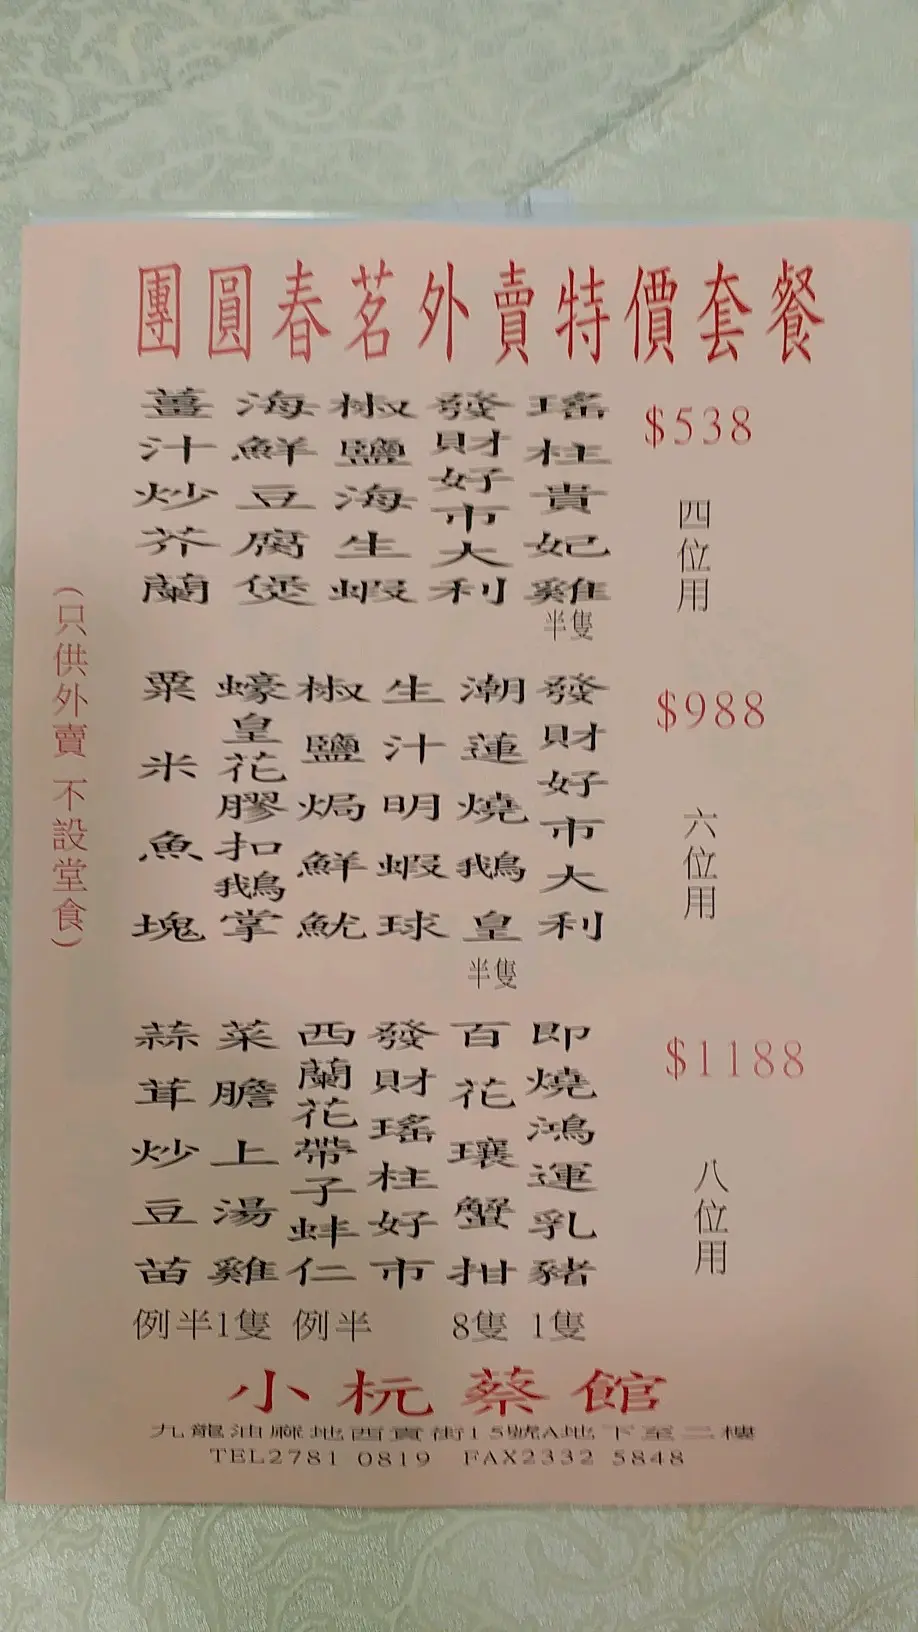 團圓春茗外賣特價套餐
$538
四位用
瑤柱貴妃雞
半隻
發財好市大利
椒鹽海生蝦
海鮮豆腐煲
薑汁炒芥蘭
$988
六位用
發財好市大利
潮蓮燒鵝皇
半隻
生汁明蝦球
椒鹽焗鮮魷
蠔皇花膠扣鵝掌
粟米魚塊
$1188
八位用
即燒鴻運乳豬
1隻
百花瓖蟹拑
8隻
發財瑤柱好市
西蘭花帶子蚌仁
例半
菜膽上湯雞
1隻
蒜茸炒豆苗
例半
(只供外賣 不設堂食)
小杬蔡館
九龍油麻地西貢街15號A地下至二樓
TEL2781 0819 FAX2332 5848